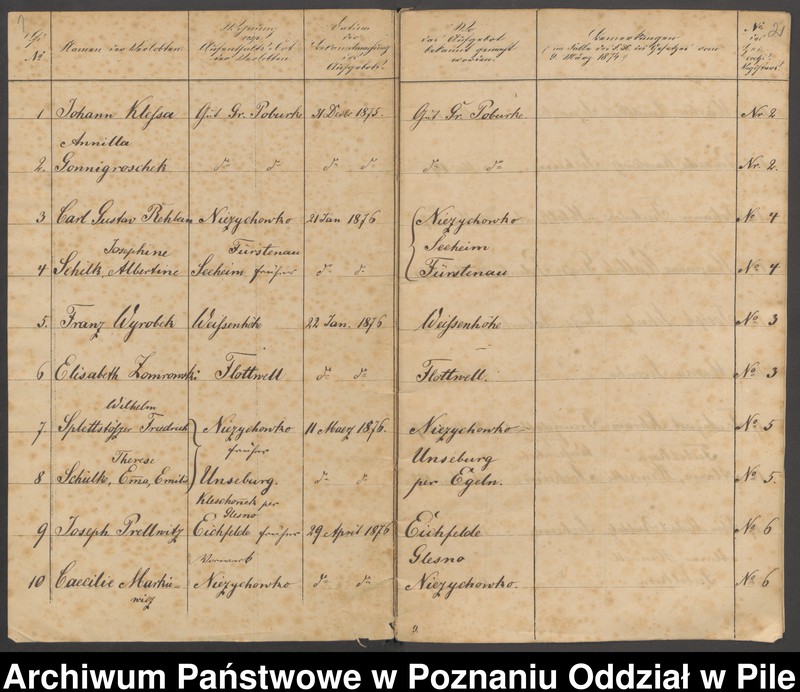 Lfd. No
Namen der Verlobten.
Wohnung
resp.
Aufenthalts-Ort
der Verlobten
Datum
der
Aufgebots.
Wo
das Aufgebot
bekannt gemacht
worden.
Bemerkungen
9. März 1874.
21
1 Johann Kleßa Gut Gr. Poburke 31 Decbr 1875. Gut Gr. Poburke Nr 2
Annilla
2. Gonnigroschek do do do do do do Nr. 2.
3 Carl Gustav Rehbein Niezychowko 21 Jan 1876 Niezychowko No 4
Josephine Fürstenau Seeheim
4 Schilk, Albertine Seeheim früher do do Fürstenau No 4
5. Franz Wyrobek Weißenhöhe 22 Jan. 1876 Weißenhöhe No 3
6 Elisabeth Domrowski Flottwell do do Flottwell. No 3
Wilhelm
7 Splettstößer Friedrich Niezychowko 11 Maerz 1876. Niezychowko No 5
früher
Therese Unseburg
8 Schülke, Ema, Emilie Unseburg. do do per Egeln. No 5.
Kleschonek per
Glesno
9 Joseph Prellwitz Eichfelde früher 29 April 1876 Eichfelde No 6
Vorwerk Glesno
10 Caecilie Markie- Niezychowko do do Niezychowko. No 6
wicz
9.
Archiwum Państwowe w Poznaniu Oddział w Pile